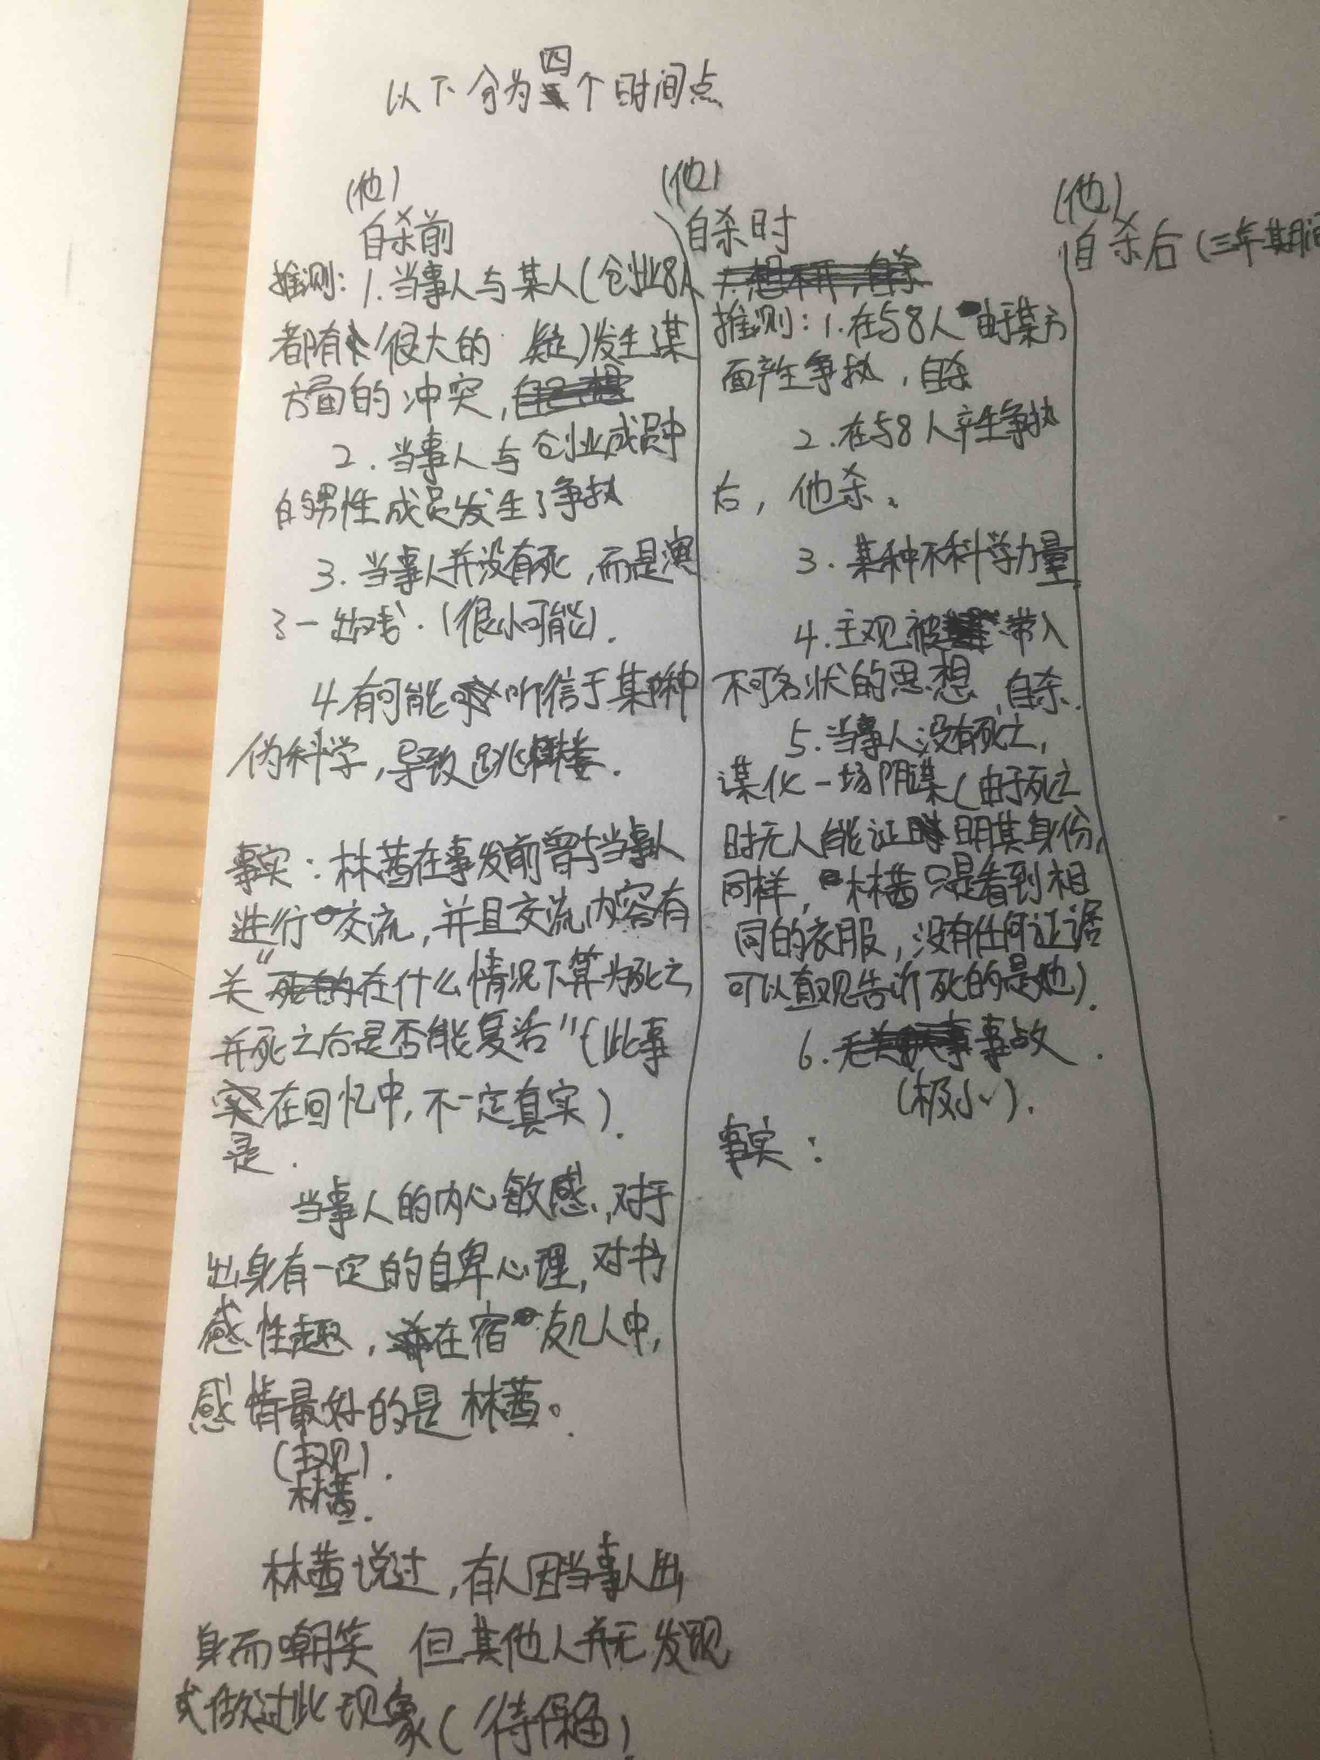 以下分为四个时间点
(他)
自杀前
推测：1.当事人与某人(创业8人
都有很大的 疑)发生了某
方面的冲突，
2.当事人与创业成员中
的男性成员发生了争执
3.当事人并没有死，而是演
了一出戏.(很小可能).
4.有可能听信于某种
伪科学，导致跳楼.
事实：林茜在事发前曾与当事人
进行交流，并且交流内容有
关“在什么情况下算为死亡
并死亡后是否能复活”(此事
实在回忆中，不一定真实).
是.
当事人的内心敏感，对于
出身有一定的自卑心理，对书
感性趣，在宿友几人中，
感情最好的是林茜。
(主观).
林茜.
林茜说过，有人因当事人出
身而嘲笑 但其他人并无发现
或做过此现象(待保留)
(他)
自杀时
推测：1.在与8人由于某方
面产生争执，自杀
2.在与8人产生争执
后，他杀。
3.某种不科学力量
4.主观被带入
不可名状的思想，自杀.
5.当事人没有死亡，
谋化一场阴谋(由于死亡
时无人能证明其身份，
同样，林茜只是看到相
同的衣服，没有任何证据
可以直观告诉死的是他).
6.事故.
(极小).
事实：
(他)
自杀后(三年期间